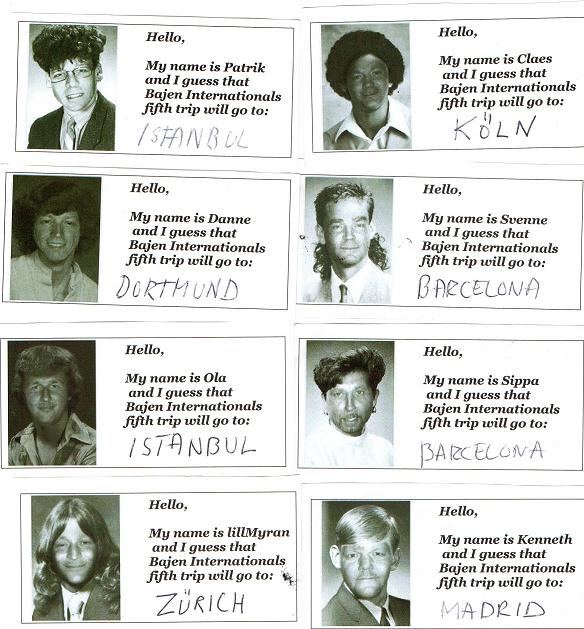 Hello,
My name is Patrik
and I guess that
Bajen Internationals
fifth trip will go to:
ISTANBUL
Hello,
My name is Claes
and I guess that
Bajen Internationals
fifth trip will go to:
KÖLN
Hello,
My name is Danne
and I guess that
Bajen Internationals
fifth trip will go to:
DORTMUND
Hello,
My name is Svenne
and I guess that
Bajen Internationals
fifth trip will go to:
BARCELONA
Hello,
My name is Ola
and I guess that
Bajen Internationals
fifth trip will go to:
ISTANBUL
Hello,
My name is Sippa
and I guess that
Bajen Internationals
fifth trip will go to:
BARCELONA
Hello,
My name is lillMyran
and I guess that
Bajen Internationals
fifth trip will go to:
ZÜRICH
Hello,
My name is Kenneth
and I guess that
Bajen Internationals
fifth trip will go to:
MADRID